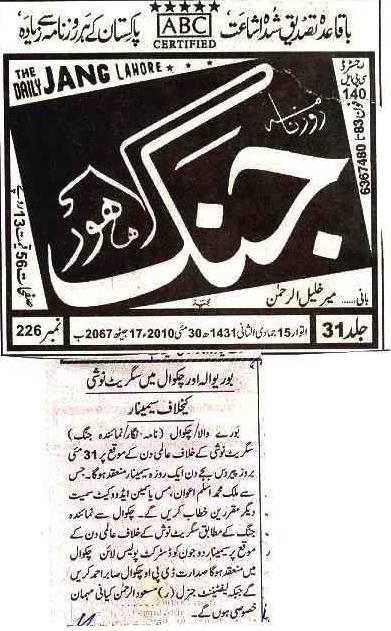 باقاعدہ تصدیق شدہ اشاعت، پاکستان کے ہر روزنامہ سے زیادہ،
ABC
CERTIFIED
THE DAILY JANG LAHORE
روزنامہ
جنگ
لاہور
رجسٹرڈ
سی پی ایل
140
فون 83 تا 6367480
صفحات 56 قیمت 13 روپے
بانی...... میر خلیل الرحمٰن
جلد 31
اتوار 15 جمادی الثانی 1431ھ 30 مئی 2010ء 17 جیٹھ 2067 ب
نمبر 226
بوریوالہ اور چکوال میں سگریٹ نوشی
کیخلاف سیمینار
بورے والا/چکوال (نامہ نگار/نمائندہ جنگ)
سگریٹ نوشی کے خلاف عالمی دن کے موقع پر 31 مئی
بروز پیر دس بجے دن ایک روزہ سیمینار منعقد ہوگا۔ جس
سے ملک محمد اسلم اعوان، مس یاسمین ایڈووکیٹ سمیت
دیگر مقررین خطاب کریں گے۔ چکوال سے نمائندہ
جنگ کے مطابق سگریٹ نوشی کے خلاف عالمی دن کے
موقع پر سیمینار دو جون کو ڈسٹرکٹ پولیس لائن چکوال
میں منعقد ہوگا صدارت ڈی پی او چکوال صابر احمد کریں
گے جبکہ لیفٹیننٹ جنرل (ر) مسعود الرحمٰن کیانی مہمان
خصوصی ہوں گے۔